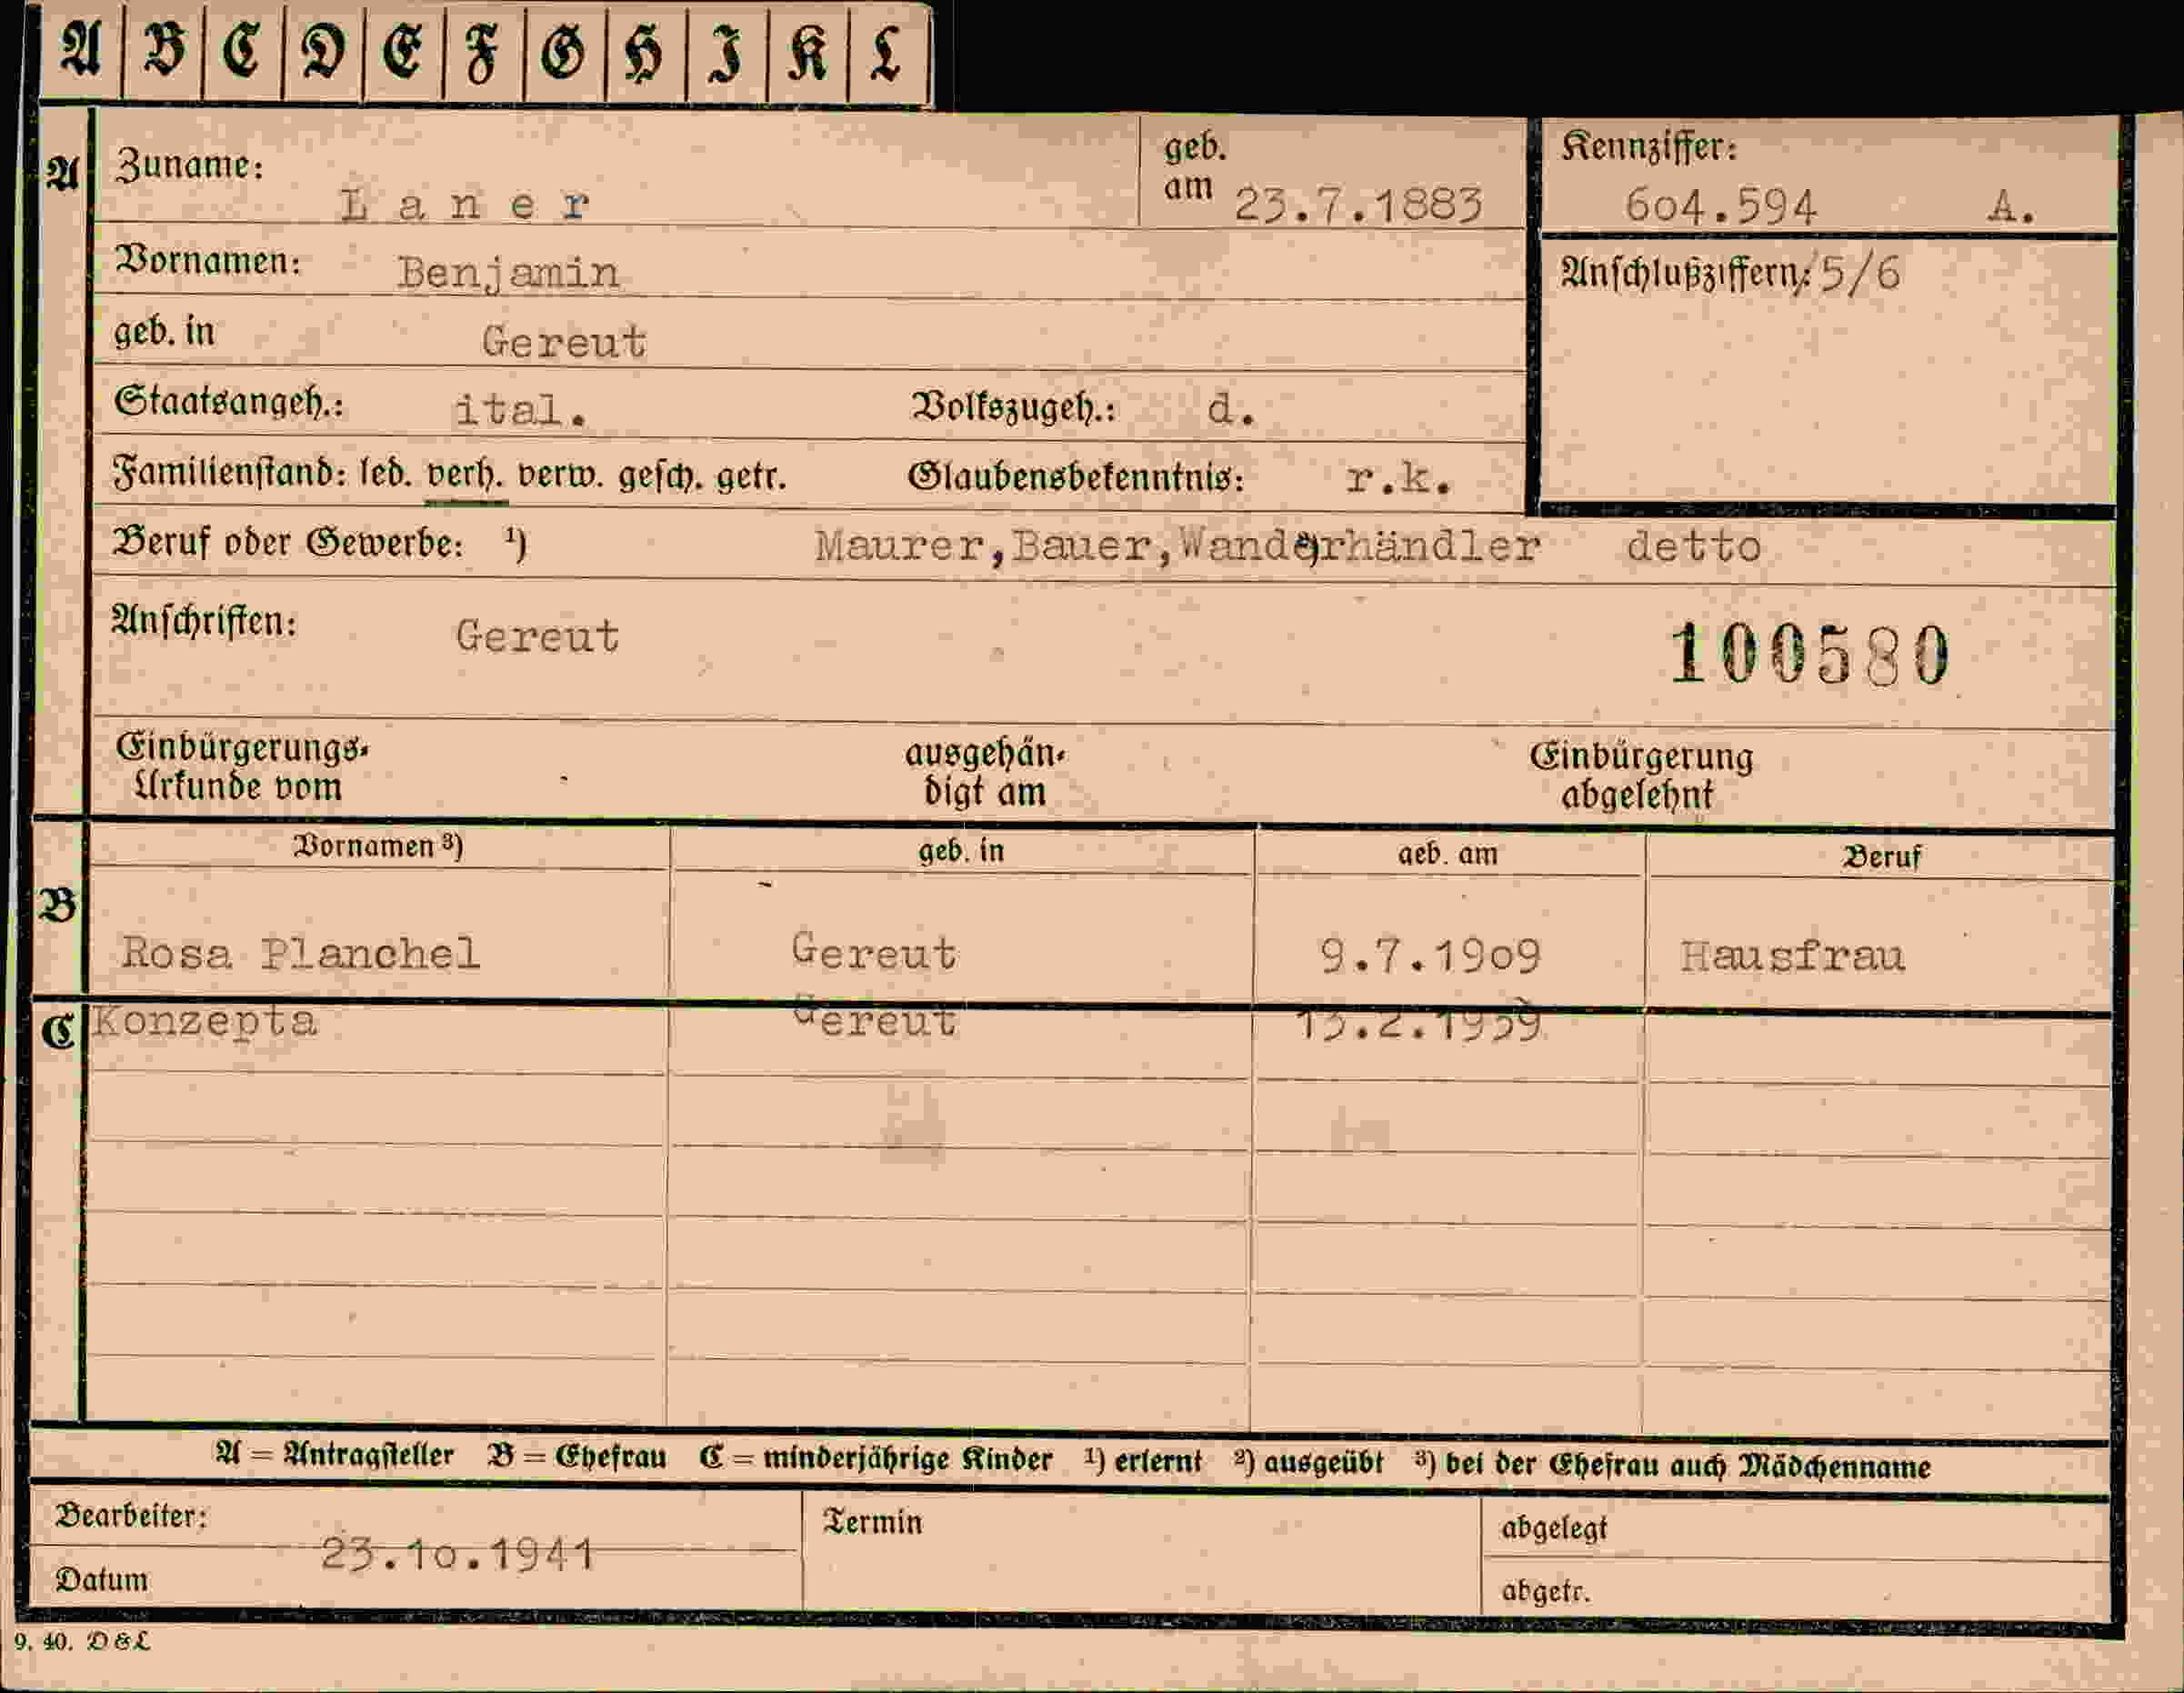 A B C D E F G H I K L
A Zuname: Laner geb. am 23.7.1883 Kennziffer: 604.594 A.
Vornamen: Benjamin Anschlußziffern: 5/6
geb. in Gereut
Staatsangeh.: ital. Volkszugeh.: d.
Familienstand: led. verh. verw. gesch. getr. Glaubensbekenntnis: r.k.
Beruf oder Gewerbe: ¹) Maurer,Bauer,Wanderhändler detto
Anschriften: Gereut 100580
Einbürgerungs- ausgehän- Einbürgerung
Urkunde vom digt am abgelehnt
Vornamen ³) geb. in geb. am Beruf
B Rosa Planchel Gereut 9.7.1909 Hausfrau
C Konzepta Gereut 13.2.1939
A = Antragsteller B = Ehefrau C = minderjährige Kinder ¹) erlernt ²) ausgeübt ³) bei der Ehefrau auch Mädchenname
Bearbeiter: Termin abgelegt
23.10.1941
Datum abgetr.
9. 40. D & L